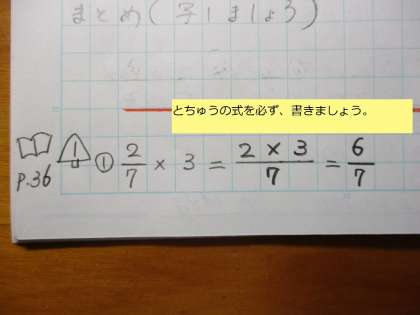 まとめ(写しましょう)
とちゅうの式を必ず、書きましょう。
1 ① 2/7 × 3 = 2×3/7 = 6/7
p.36